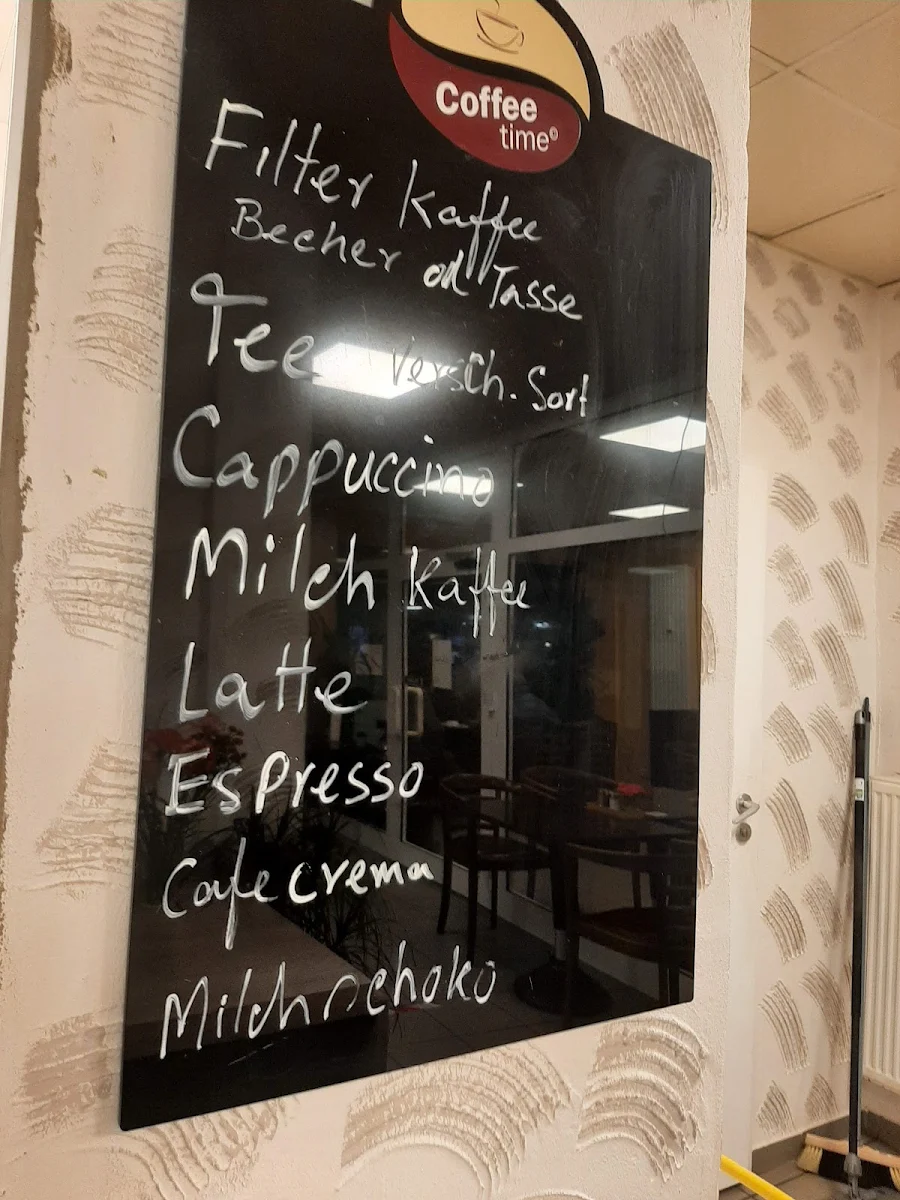 Coffee
time©
Filter Kaffee
Becher od Tasse
Tee Versch. Sort
Cappuccino
Milch Kaffee
Latte
Espresso
Cafe crema
Milchschoko